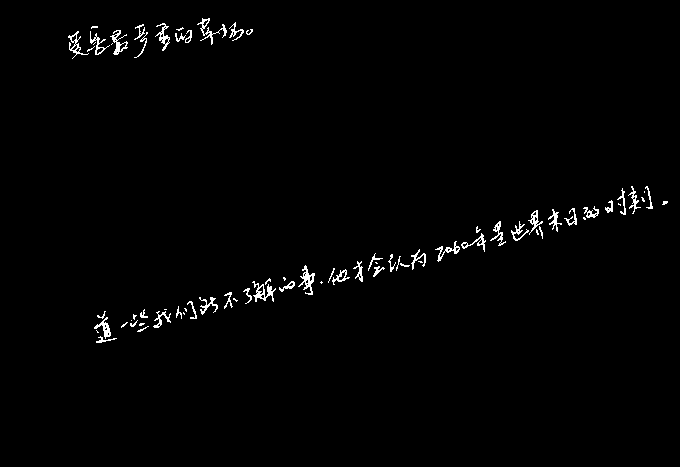 受害最严重的草场。
道一些我们所不了解的事，他才会认为2060年是世界末日的时刻。